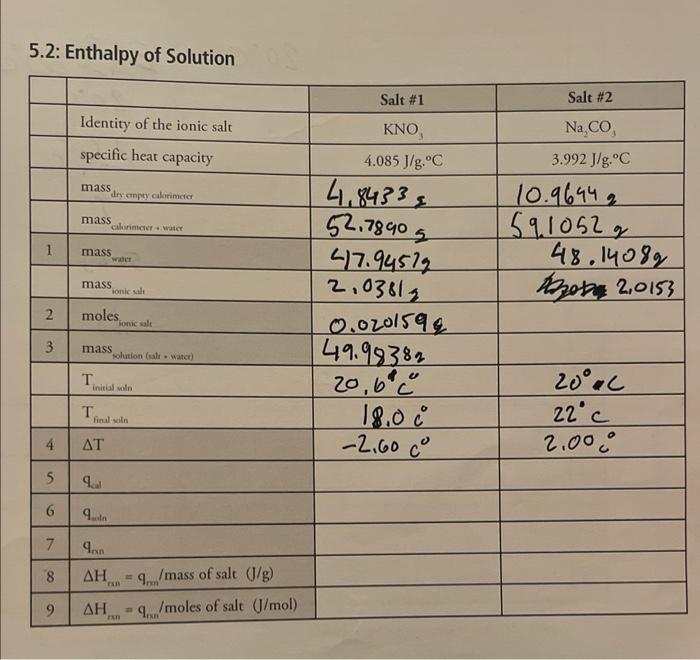 5.2: Enthalpy of Solution
Salt #1 Salt #2
Identity of the ionic salt KNO₃ Na₂CO₃
specific heat capacity 4.085 J/g.ºC 3.992 J/g.ºC
mass dry empty calorimeter 4.8433 g 10.9644 g
mass calorimeter + water 52.7890 g 59.1052 g
1 mass water 47.9457g 48.1408g
mass ionic salt 2.0381g 2.0153
2 moles ionic salt 0.020159g
3 mass solution (salt + water) 49.9838g
T initial soln 20.6°C° 20°C
T final soln 18.0 C° 22°C
4 ΔT -2.60 C° 2.00 C°
5 q cal
6 q soln
7 q rxn
8 ΔH rxn = q rxn/mass of salt (J/g)
9 ΔH rxn = q rxn/moles of salt (J/mol)